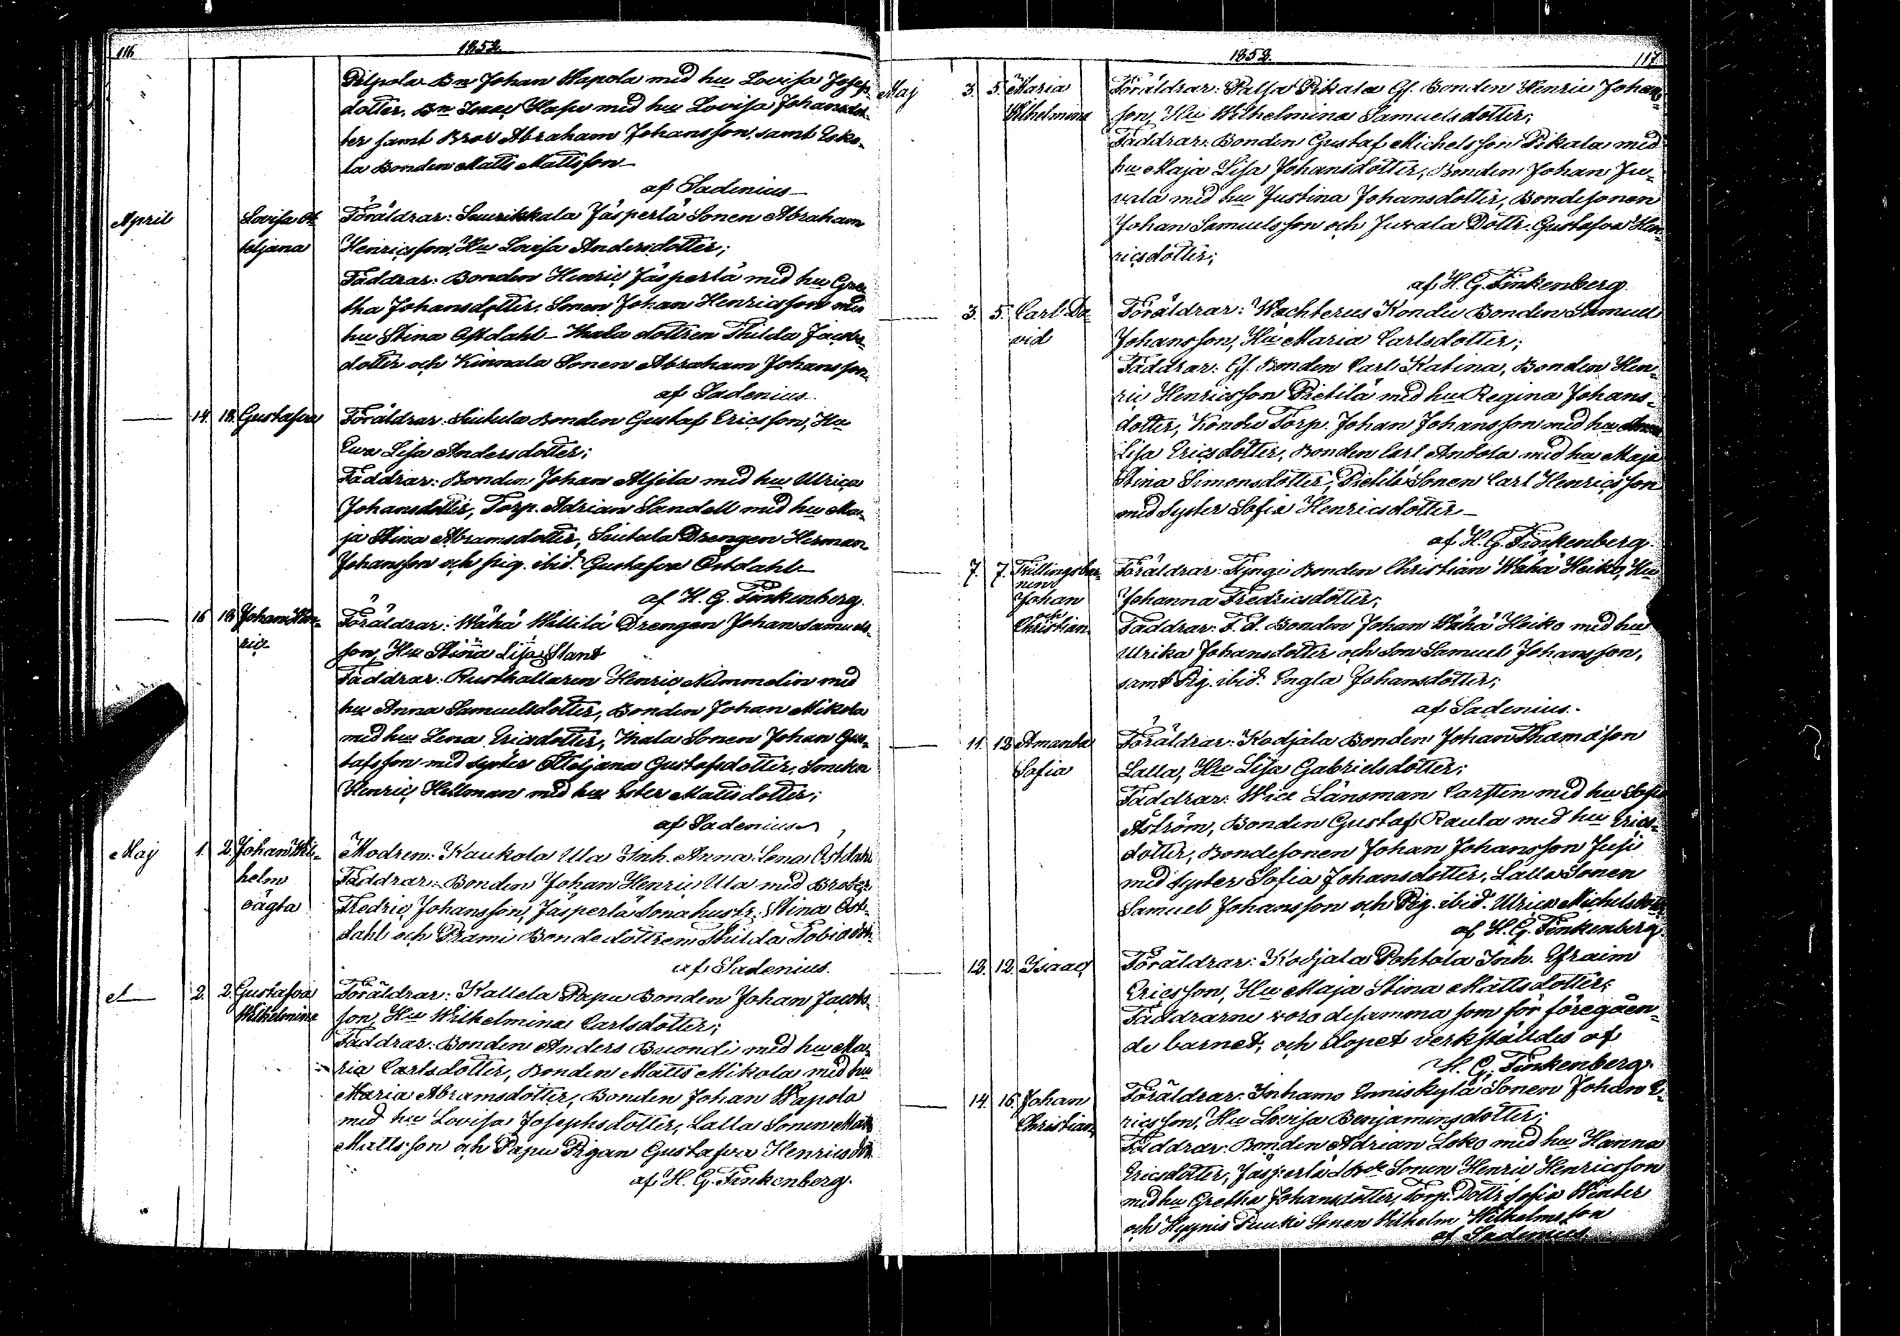 116
1852.
Pilpola Bn Johan Wapola med hu Lovisa Josephs-
dotter. Bn Isaac Hapu med hu Lovisa Johansdot-
ter samt Bror Abraham Johansson, samt Esko-
la Bonden Matts Mattsson
af Sadenius
April Lovisa Ot- Föräldrar: Suurikkala Jäsperlä Sonen Abraham
teljana Henricsson, Hu Lovisa Andersdotter;
Faddrar: Bonden Henric Jäsperlä med hu Gre-
tha Johansdotter. Sonen Johan Henricsson med
hu Stina Östdahl Ihala dottren Thilda Jacobs-
dotter och Kinnala Sonen Abraham Johansson.
af Sadenius.
14. 18. Gustafva Föräldrar: Suikula Bonden Gustaf Ericsson, Hu
Ewa Lisa Andersdotter;
Faddrar: Bonden Johan Alsila med hu Ulrica
Johansdotter, Torp. Adrian Sandell med hu Ma-
ja Stina Abramsdotter, Suikula Drengen Herman
Johansson och pig. ibid. Gustafva Östdahl
af H. G. Finkenberg.
16 18 Johan Hen- Föräldrar: Wähä Willilä Drengen Johan Samuels-
ric Son, Hu Stina Lisa Stant
Faddrar: Rusthållaren Henric Nummelin med
hu Anna Samuelsdotter, Bonden Johan Mikola
med hu Lena Ericsdotter, Ihala Sonen Johan Gus-
tafsson med syster Otteljana Gustafsdotter, Snickar
Henric Hellman med hu Ester Mattsdotter;
af Sadenius
Maj 1. 2. Johan Wil- Modren: Kaukola Ula Inh. Anna Lena Östdahl
helm Faddrar: Bonden Johan Henric Ula med Broter
oägta Fredric Johansson, Jäsperlä Sonahustr. Stina Öst-
dahl och Prami Bondedottren Thilda Tobiasdot.
af Sadenius.
2. 2. Gustafva Föräldrar: Kallela Papu Bonden Johan Jacobs-
Wilhelmina son, Hu Wilhelmina Carlsdotter;
Faddrar: Bonden Anders Buondi med hu Ma-
ria Carlsdotter, Bonden Matts Mikola med hu
Maria Abramsdotter, Bonden Johan Wapola
med hu Lovisa Josephsdotter, Lalla Sonen Matts
Mattsson och Papu Pigan Gustafva Henricsdot.
af H. G. Finkenberg.
1852.
117.
Maj 3. 5. Maria Föräldrar: Palsa Pikala Ef. Bonden Henric Johans-
Wilhelmina son, Hu Wilhelmina Samuelsdotter;
Faddrar: Bonden Gustaf Michelsson Pikala med
hu Maja Lisa Johansdotter, Bonden Johan Ju-
vala med hu Justina Johansdotter, Bondesonen
Johan Samuelsson och Juvala Dottr. Gustafva Hen-
ricsdotter;
af H. G. Finkenberg.
3. 5. Carl Da- Föräldrar: Wachterus Kondu Bonden Samuel
vid Johansson, Hu Maria Carlsdotter;
Faddrar: Ef. Bonden Carl Katina, Bonden Hen-
ric Henricsson Pietilä med hu Regina Johans-
dotter, Kondu Torp. Johan Johansson med hu Anna
Lisa Ericsdotter, Bonden Carl Anbola med hu Maja
Stina Simonsdotter, Pietilä Sonen Carl Henricsson
med Syster Sofia Henricsdotter
af H. G. Finkenberg.
7. 7. Tvillingsbar- Föräldrar: Tyngi Bonden Christian Wähä Heiko, Hu
nen Johan Johanna Fredricsdotter;
och Christian. Faddrar: F. d. Bonden Johan Wähä Heiko med hu
Ulrika Johansdotter och Son Samuel Johansson,
samt Pig. ibid. Engla Johansdotter;
af Sadenius.
11. 12. Amanda Föräldrar: Kodjala Bonden Johan Thomasson
Sofia Lalla, Hu Lisa Gabrielsdotter;
Faddrar: Wice Länsman Carsten med hu Sofia
Åström, Bonden Gustaf Raula med hu Erics-
dotter, Bondesonen Johan Johansson Jusi
med Syster Sofia Johansdotter, Lalla Sonen
Samuel Johansson och Pig. ibid. Ulrica Michelsdotter
af H. G. Finkenberg.
12. 12. Isaac Föräldrar: Kodjala Pohtola Inh. Efraim
Ericsson, Hu Maja Stina Mattsdotter;
Faddrarne voro desamma som för föregåen-
de barnet; och dopet verkställdes af
H. G. Finkenberg.
14. 16. Johan Föräldrar: Inhamo Enniskylä Sonen Johan E-
Christian, ricsson, Hu Lovisa Benjaminsdotter;
Faddrar: Bonden Adrian Loko med hu Hanna
Ericsdotter, Jäsperlä Bde Sonen Henric Henricsson
med hu Gretha Johansdotter, Torp. Dottr. Sofia Winter
och Hypnis Puuki Sonen Wilhelm Wilhelmsson
af Sadenius.